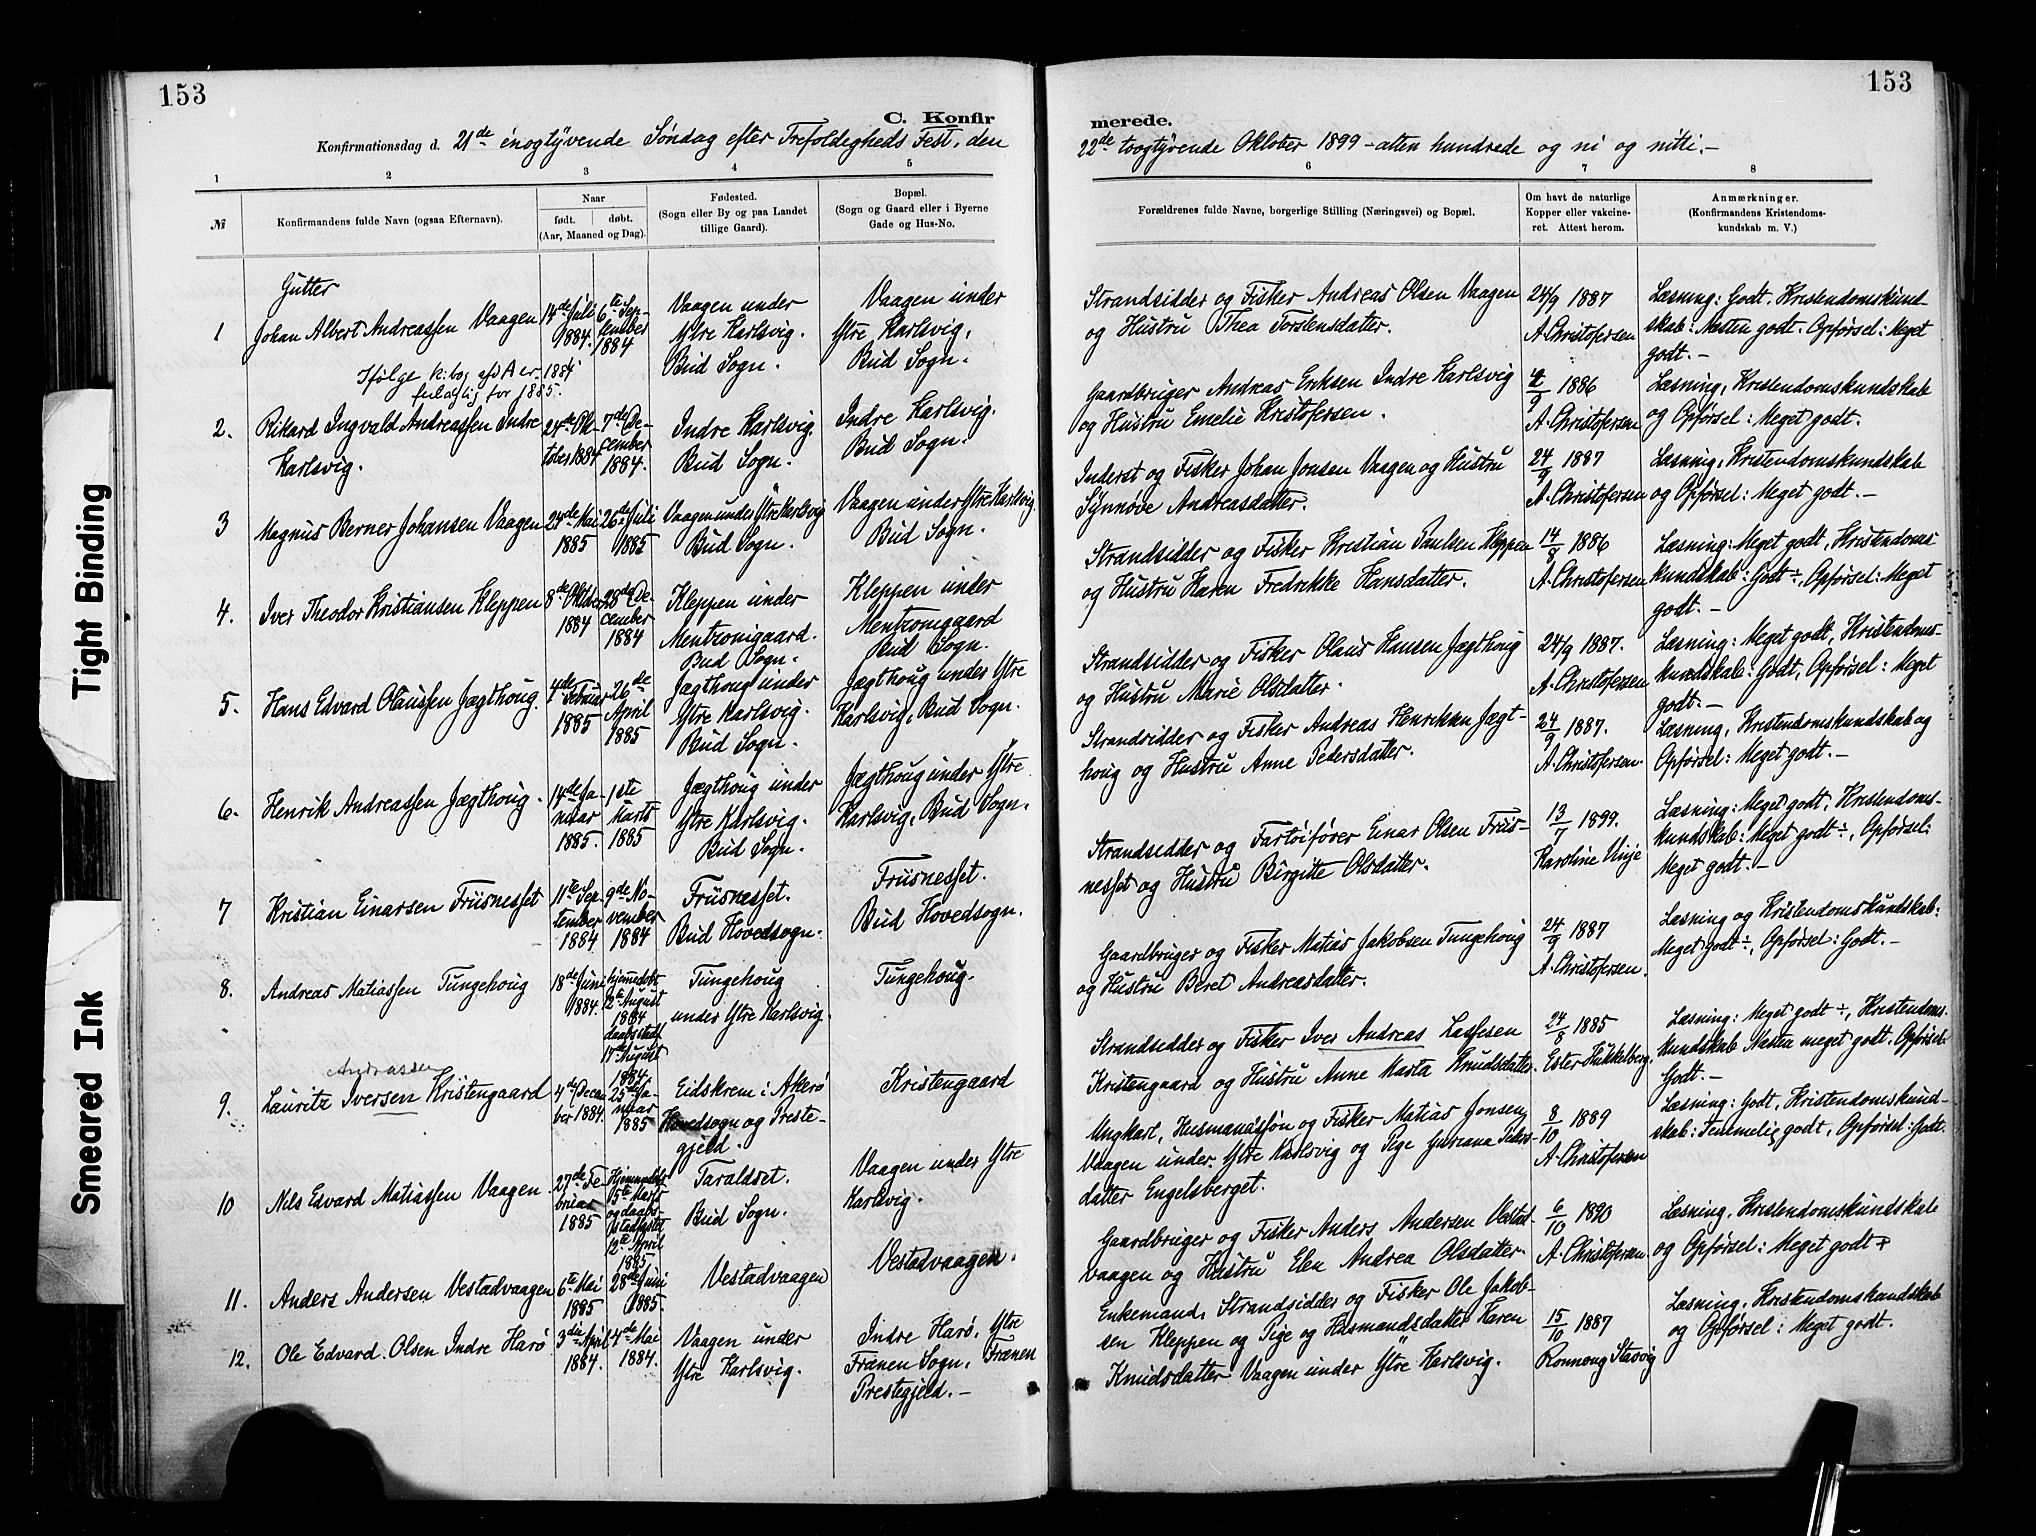 153
C. Konfir
Konfirmationsdag d. 21de énogtyvende Søndag efter Trefoldigheds Fest, den
1 2 3 4 5
№
Konfirmandens fulde Navn (ogsaa Efternavn).
Naar
født. døbt.
(Aar, Maaned og Dag).
Fødested.
(Sogn eller By og paa Landet
tillige Gaard).
Bopæl.
(Sogn og Gaard eller i Byerne
Gade og Hus-No.
Gutter
1
Johan Albert Andreassen Vaagen
14de Juli
1884.
6te Sep-
tember
1884
Vaagen under
Ytre Karlsvig.
Bud Sogn.
Vaagen under
Ytre Karlsvig,
Bud Sogn.
Ifølge k.bog afd A er 1884
for 1885.
2.
Rikard Ingvald Andreassen Indre
Karlsvig.
24de Ok-
tober 1884
7de De-
cember
1884.
Indre Karlsvig.
Bud Sogn.
Indre Karlsvig.
Bud Sogn.
3
Magnus Berner Johansen Vaagen
24de Mai
1885
26de Juli
1885
Vaagen under Ytre Karlsvig
Bud Sogn.
Vaagen under Ytre Karlsvig
Bud Sogn.
4.
Iver Theodor Kristiansen Kleppen
8de Oktober
1884
28de De-
cember
1884
Kleppen under
Mentzonigaard.
Bud Sogn.
Kleppen under
Mentzonigaard
Bud Sogn.
5.
Hans Edvard Olaussen Jægthoug.
4de
Februar
1885
26de
April
1885
Jægthoug under
Ytre Karlsvig.
Bud Sogn.
Jægthoug under Ytre
Karlsvig, Bud Sogn.
6.
Henrik Andreassen Jægthoug.
14de Ja-
nuar
1885.
1ste
Marts
1885
Jægthoug under
Ytre Karlsvig.
Bud Sogn.
Jægthoug under Ytre
Karlsvig, Bud Sogn.
7
Kristian Einarsen Frusnesset
11te Sep-
tember
1884
9de No-
vember
1884
Frusnesset.
Bud Hovedsogn.
Frusnesset.
Bud Hovedsogn.
8.
Andreas Matiassen Tungehoug
18de Juni
1884.
hjemmedøbt
2de August
1884
daabsstadf.
17de August
1884.
Tungehoug
under Ytre Karlsvig.
Tungehoug.
Andrassen
9.
Lauritz Iversen Kristengaard
4de Decem-
ber 1884.
25de Ja-
nuar
1885
Eidskrem i Akerø
Hovedsogn og Preste-
gjeld.
Kristengaard
10
Nils Edvard Matiassen Vaagen.
27de Fe-
bruar
1885
Hjemmedøbt
15de Marts
og daabs-
stadfæstet
12te April
1885
Taraldset.
Bud Sogn.
Vaagen under Ytre
Karlsvig.
11.
Anders Andersen Vestadvaagen
6te Mai
1885
28de Juni
1885.
Vestadvaagen
Vestadvaagen.
12.
Ole Edvard Olsen Indre Harø
3die April
1884.
4de Mai
1884.
Vaagen under
Ytre Karlsvig.
Indre Harø, Ytre
Frænen Sogn, Frænen
Prestegjeld.—
153
merede.
22de toogtyvende Oktober 1899 - atten hundrede og ni og nitti.—
6 7 8
Forældrenes fulde Navne, borgerlige Stilling (Næringsvei) og Bopæl.
Om havt de naturlige
Kopper eller vakcine-
ret. Attest herom.
Anmærkninger.
(Konfirmandens Kristendoms-
kundskab m. V.)
Strandsidder og Fisker Andreas Olsen Vaagen
og Hustru Thea Torstensdatter.
24/9 1887
A. Christofersen
Læsning: Godt. Kristendomskund-
skab: Næsten godt. Opførsel: Meget
godt.—
Gaardbruger Andreas Eriksen Indre Karlsvig
og Hustru Emelie Kristofersen.
4/9 1886
A. Christofersen
Læsning, Kristendomskundskab
og Opførsel: Meget godt.
Inderst og Fisker Johan Jonsen Vaagen og Hustru
Synnøve Andreasdatter.
24/9 1887
A. Christofersen
Læsning, Kristendomskundskab
og Opførsel: Meget godt.—
Strandsidder og Fisker Kristian Paulsen Kleppen
og Hustru Karen Fredrikke Hansdatter.
14/8 1886
A. Christofersen
Læsning: Meget godt, Kristendoms
kundskab: Godt÷, Opførsel: Meget
godt.—
Strandsidder og Fisker Olaus Hansen Jægthoug
og Hustru Marie Olsdatter.
24/9 1887.
A. Christofersen
Læsning: Meget godt, Kristendoms-
kundskab: Godt, Opførsel: Meget
godt.—
Strandsidder og Fisker Andreas Henrikken Jægt-
houg og Hustru Anne Pedersdatter.
24/9 1887.
A. Christofersen.
Læsning, Kristendomskundskab og
Opførsel: Meget godt.—
Strandsedder og Fartøifører Einar Olsen Frus-
nesset og Hustru Birgitte Olsdatter.
13/7 1899.
Karoline Vinje
Læsning: Meget godt, Kristendoms-
kundskab: Meget godt÷, Opførsel:
Meget godt.—
Gaardbruger og Fisker Matias Jakobsen Tungehoug
og Hustru Beret Andreasdatter.
24/9 1887
A. Christofersen.
Læsning og Kristendomskundskab:
Meget godt÷, Opførsel: Godt.—
Strandsedder og Fisker Iver Andreas Lassesen
Kristengaard og Hustru Anne Marta Knudsdatter.
24/8 1885
Ester Hukkelberg.
Læsning: Meget godt÷, Kristendoms-
kundskab Næsten meget godt. Opførsel
Godt.—
Ungkart, Husmandssøn og Fisker Matias Jonsen
Vaagen under Ytre Karlsvig og Pige Gureana Peders-
datter Engelsberget.
8/10 1889
A. Christofersen
Læsning: Godt, Kristendomskund-
skab: Temmelig godt, Opførsel: Godt.
Gaardbruger og Fisker Anders Andersen Vestad-
vaagen og Hustru Elen Andrea Olsdatter.
6/10 1890
A. Christofersen
Læsning, Kristendomskundskab
og Opførsel: Meget godt
Enkemand, Strandsidder og Fisker Ole Jakob-
sen Kleppen og Pige og Husmandsdatter Karen
Knudsdatter Vaagen under Ytre Karlsvig.
15/10 1887
Ronnoug Stavig
Læsning, Kristendomskundskab
og Opførsel: Meget godt.
Tight Binding
Smeared Ink